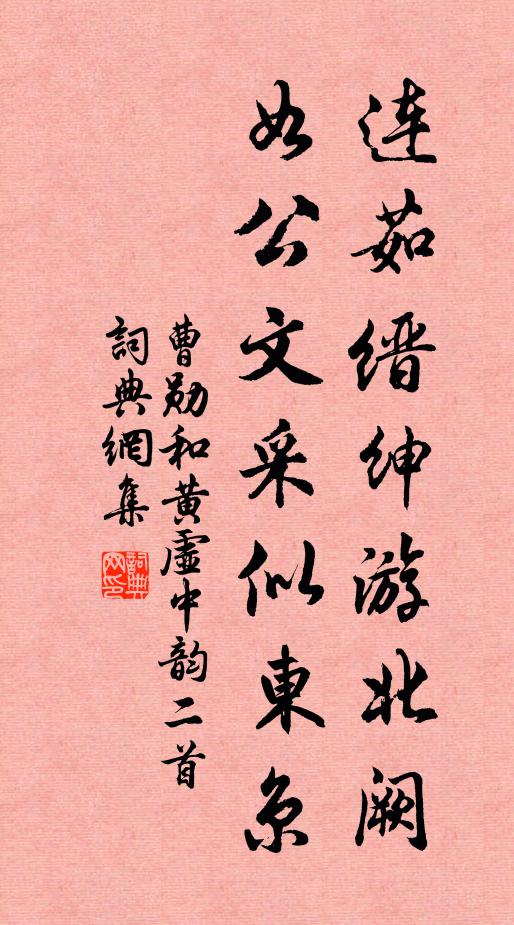 連茹缙紳游北阙
如公文采似東京
曹勋和黄虛中韵二首
詞典網集
詞典
网印